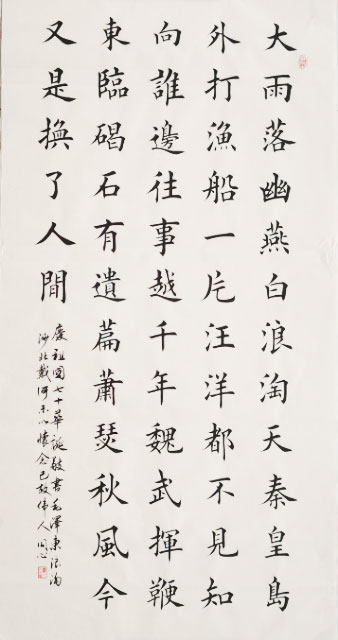 大雨落幽燕白浪淘天秦皇島
外打漁船一片汪洋都不見知
向誰邊往事越千年魏武揮鞭
東臨碣石有遺篇蕭瑟秋風今
又是換了人間
慶祖國七十華誕敬書毛澤東浪淘
沙北戴河懷念已故偉人